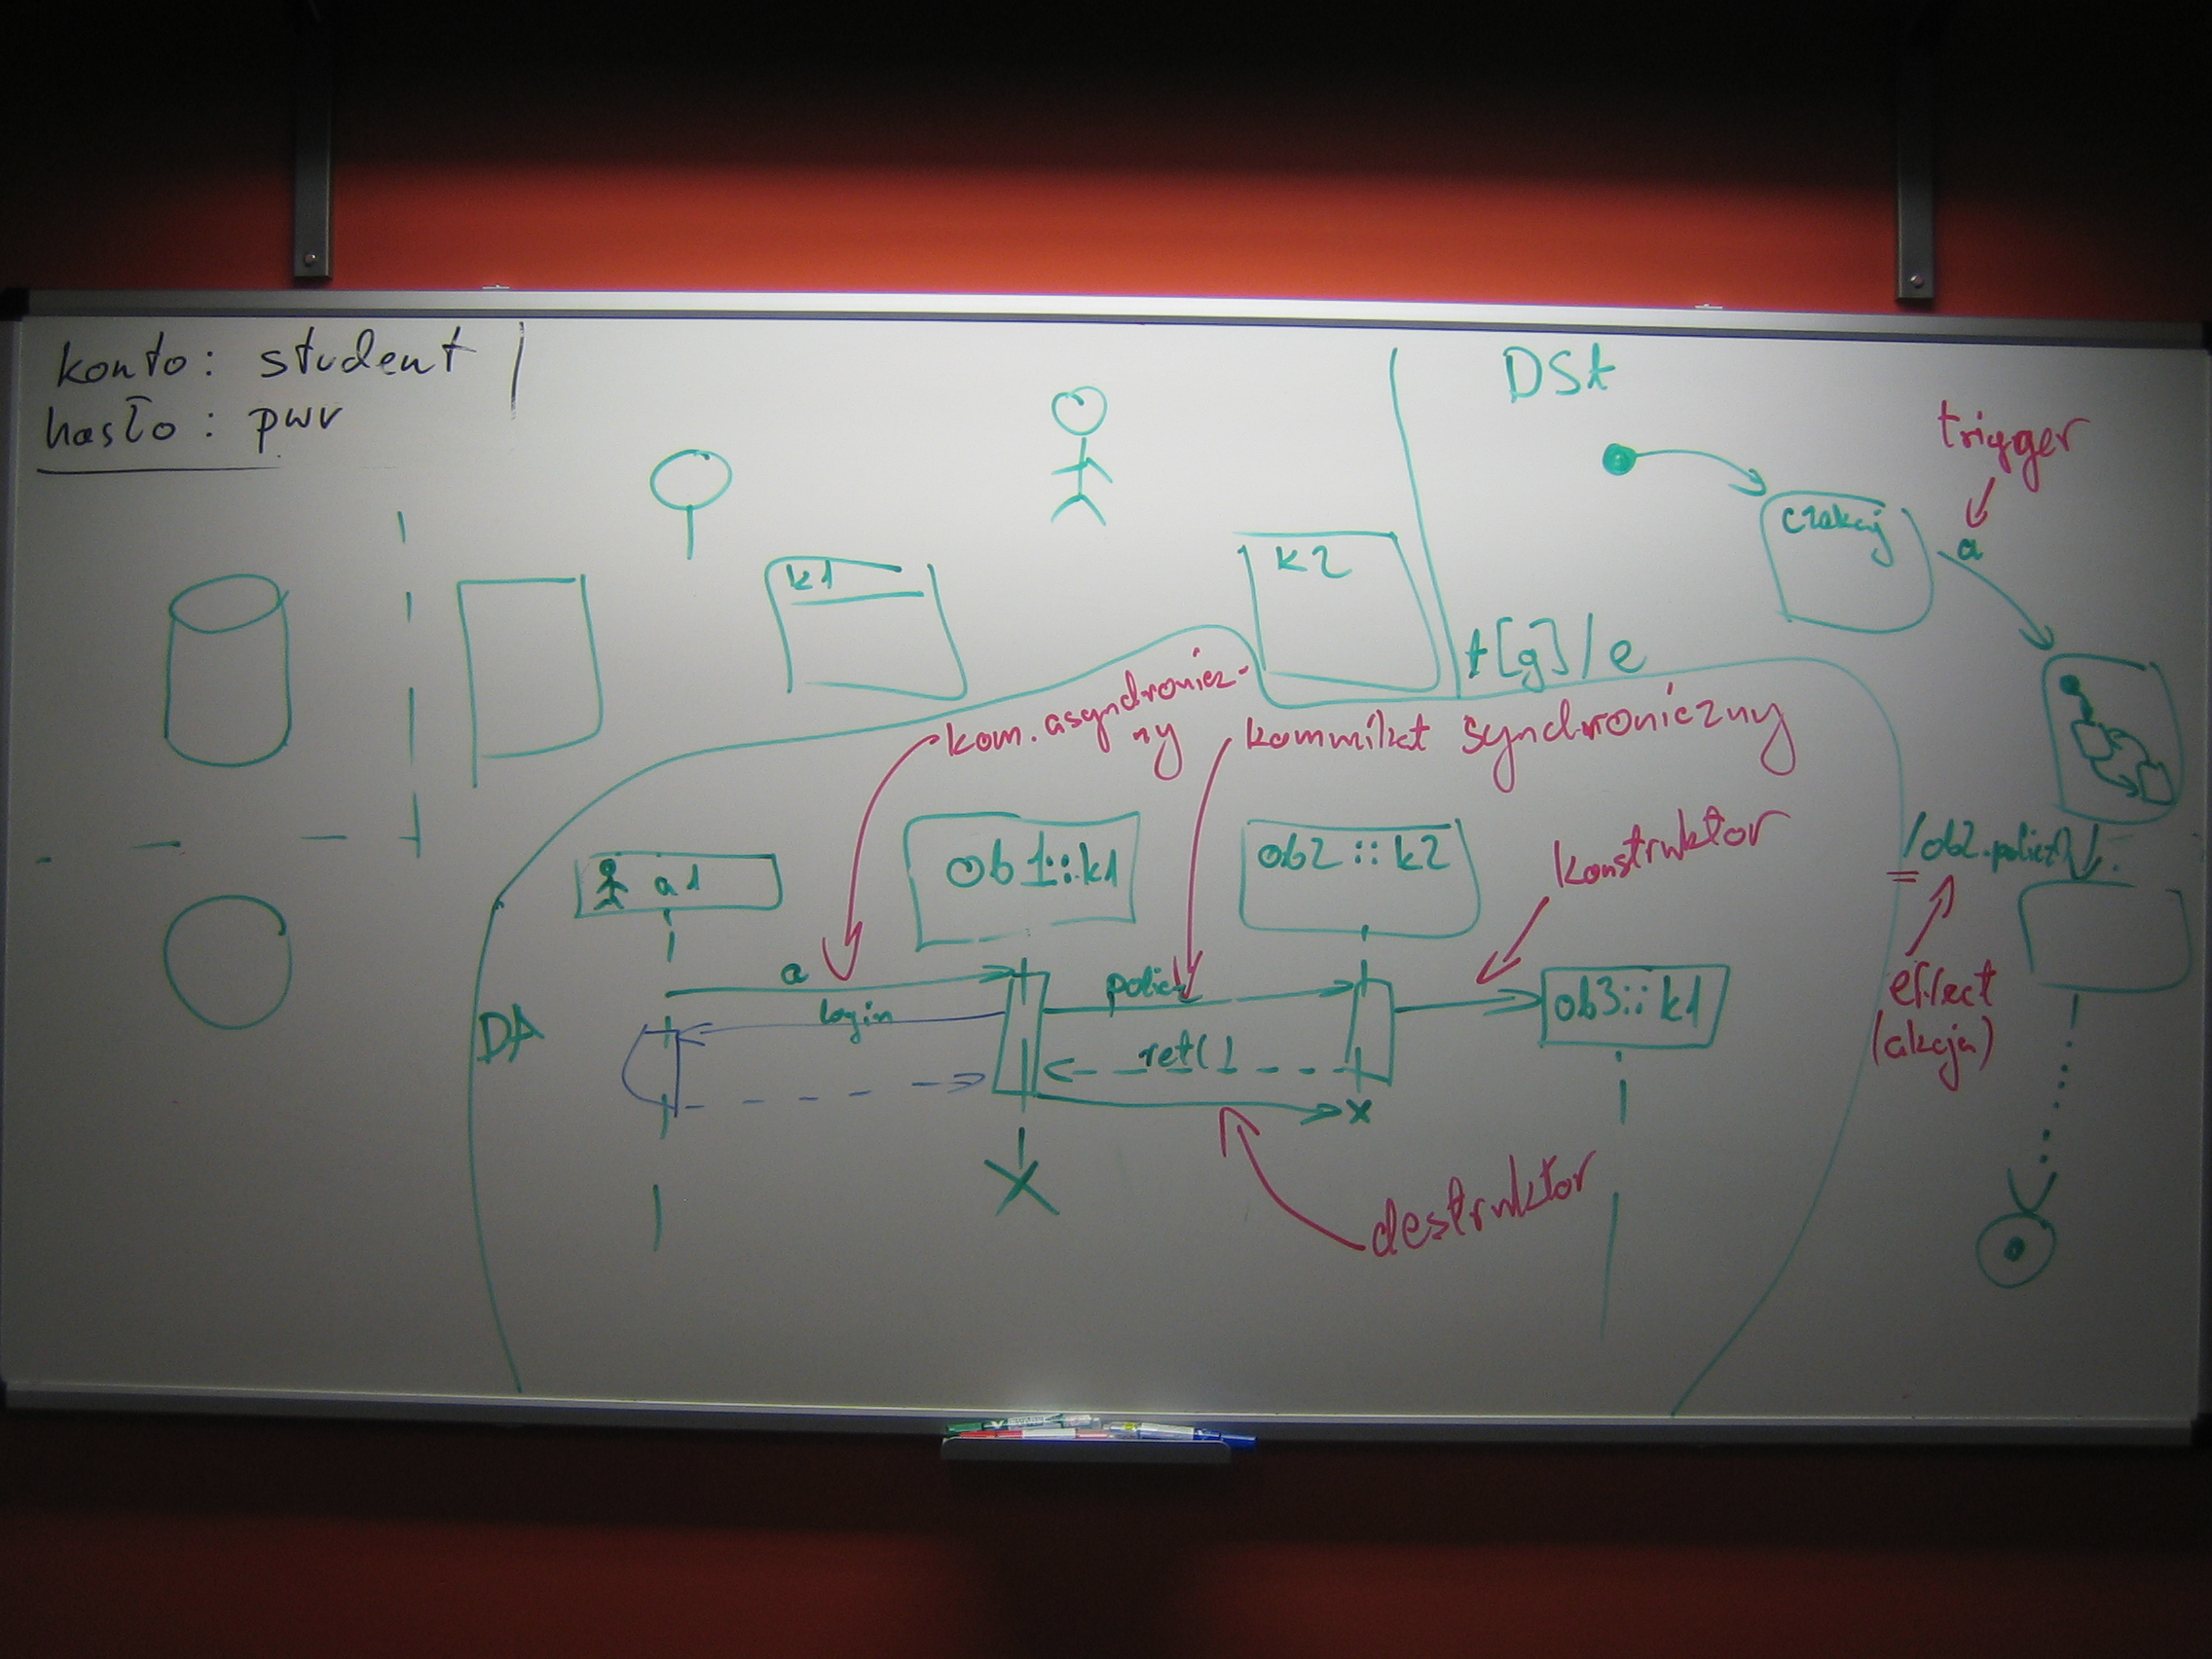 konto: student
hasło: pwr
DSt
trigger
a
czekaj
k1
k2
t[g]/e
kom. asynchronicz-
ny
komunikat synchroniczny
konstruktor
a1
ob1::k1
ob2::k2
/ob2.policz()
effect
(akcja)
DA
a
login
policz
ret()
ob3::k1
destruktor